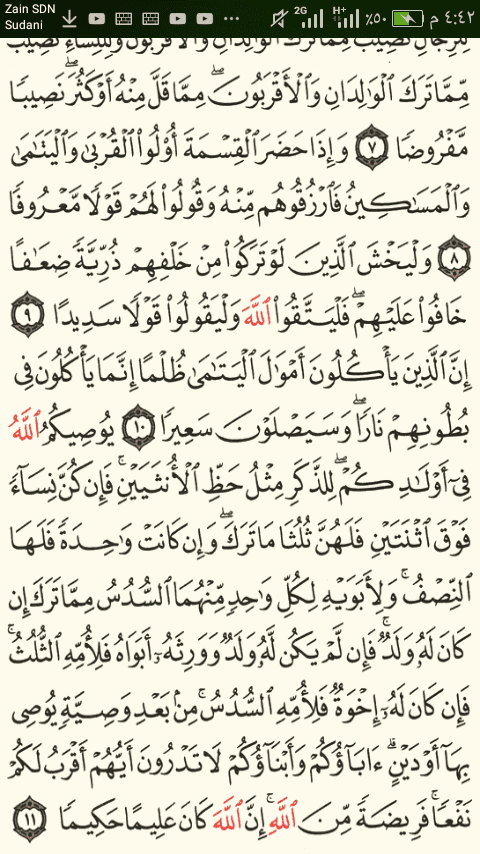 Zain SDN
Sudani
2G H+ ٥٠٪ ٤:٤٢ م
لِّلرِّجَالِ نَصِيبٌ مِّمَّا تَرَكَ ٱلْوَٰلِدَانِ وَٱلْأَقْرَبُونَ وَلِلنِّسَآءِ نَصِيبٌ
مِّمَّا تَرَكَ ٱلْوَٰلِدَانِ وَٱلْأَقْرَبُونَ مِمَّا قَلَّ مِنْهُ أَوْ كَثُرَ ۚ نَصِيبًا
مَّفْرُوضًا ٧ وَإِذَا حَضَرَ ٱلْقِسْمَةَ أُو۟لُوا۟ ٱلْقُرْبَىٰ وَٱلْيَتَٰمَىٰ
وَٱلْمَسَٰكِينُ فَٱرْزُقُوهُم مِّنْهُ وَقُولُوا۟ لَهُمْ قَوْلًا مَّعْرُوفًا
٨ وَلْيَخْشَ ٱلَّذِينَ لَوْ تَرَكُوا۟ مِنْ خَلْفِهِمْ ذُرِّيَّةً ضِعَٰفًا
خَافُوا۟ عَلَيْهِمْ ۖ فَلْيَتَّقُوا۟ ٱللَّهَ وَلْيَقُولُوا۟ قَوْلًا سَدِيدًا ٩
إِنَّ ٱلَّذِينَ يَأْكُلُونَ أَمْوَٰلَ ٱلْيَتَٰمَىٰ ظُلْمًا إِنَّمَا يَأْكُلُونَ فِى
بُطُونِهِمْ نَارًا ۖ وَسَيَصْلَوْنَ سَعِيرًا ١٠ يُوصِيكُمُ ٱللَّهُ
فِىٓ أَوْلَٰدِكُمْ ۖ لِلذَّكَرِ مِثْلُ حَظِّ ٱلْأُنثَيَيْنِ ۚ فَإِن كُنَّ نِسَآءً
فَوْقَ ٱثْنَتَيْنِ فَلَهُنَّ ثُلُثَا مَا تَرَكَ ۖ وَإِن كَانَتْ وَٰحِدَةً فَلَهَا
ٱلنِّصْفُ ۚ وَلِأَبَوَيْهِ لِكُلِّ وَٰحِدٍ مِّنْهُمَا ٱلسُّدُسُ مِمَّا تَرَكَ إِن
كَانَ لَهُۥ وَلَدٌ ۚ فَإِن لَّمْ يَكُن لَّهُۥ وَلَدٌ وَوَرِثَهُۥٓ أَبَوَاهُ فَلِأُمِّهِ ٱلثُّلُثُ ۚ
فَإِن كَانَ لَهُۥٓ إِخْوَةٌ فَلِأُمِّهِ ٱلسُّدُسُ ۚ مِنۢ بَعْدِ وَصِيَّةٍ يُوصِى
بِهَآ أَوْ دَيْنٍ ۗ ءَابَآؤُكُمْ وَأَبْنَآؤُكُمْ لَا تَدْرُونَ أَيُّهُمْ أَقْرَبُ لَكُمْ
نَفْعًا ۚ فَرِيضَةً مِّنَ ٱللَّهِ ۗ إِنَّ ٱللَّهَ كَانَ عَلِيمًا حَكِيمًا ١١